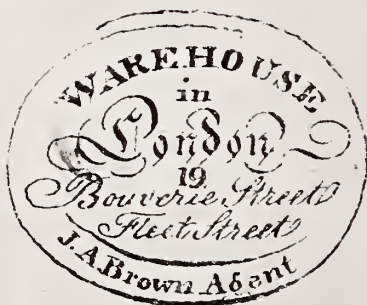 WAREHOUSE
in
London
19
Bouverie Street
Fleet Street
J.A Brown Agent